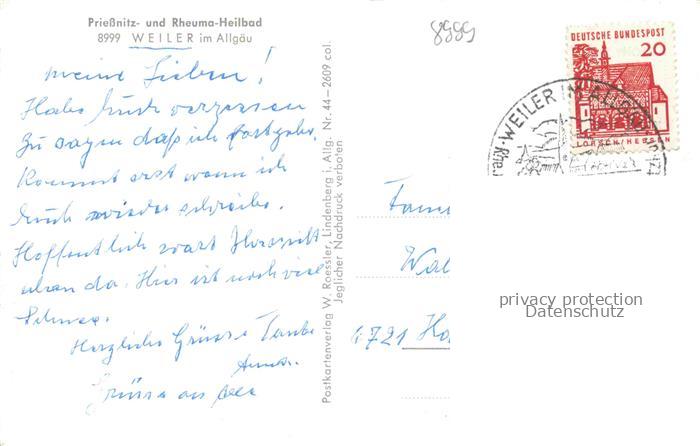 Prießnitz- und Rheuma-Heilbad
8999 WEILER im Allgäu
meine Lieben!
Habe Euch vergessen
zu sagen daß ich fortgehe.
Kommt erst wenn ich
Euch wieder schreibe.
Hoffentlich wart Ihr nicht
oben da. Hier ist noch viel
Schnee.
Herzliche Grüsse Tante
Anna.
Grüsse an alle
Postkartenverlag W. Roessler, Lindenberg i. Allg. Nr. 44-2609 col.
Jeglicher Nachdruck verboten
8999
DEUTSCHE BUNDESPOST
20
LORSCH/HESSEN
WEILER IM ALLGÄU
Fam
Wal
4721 Ho
privacy protection
Datenschutz